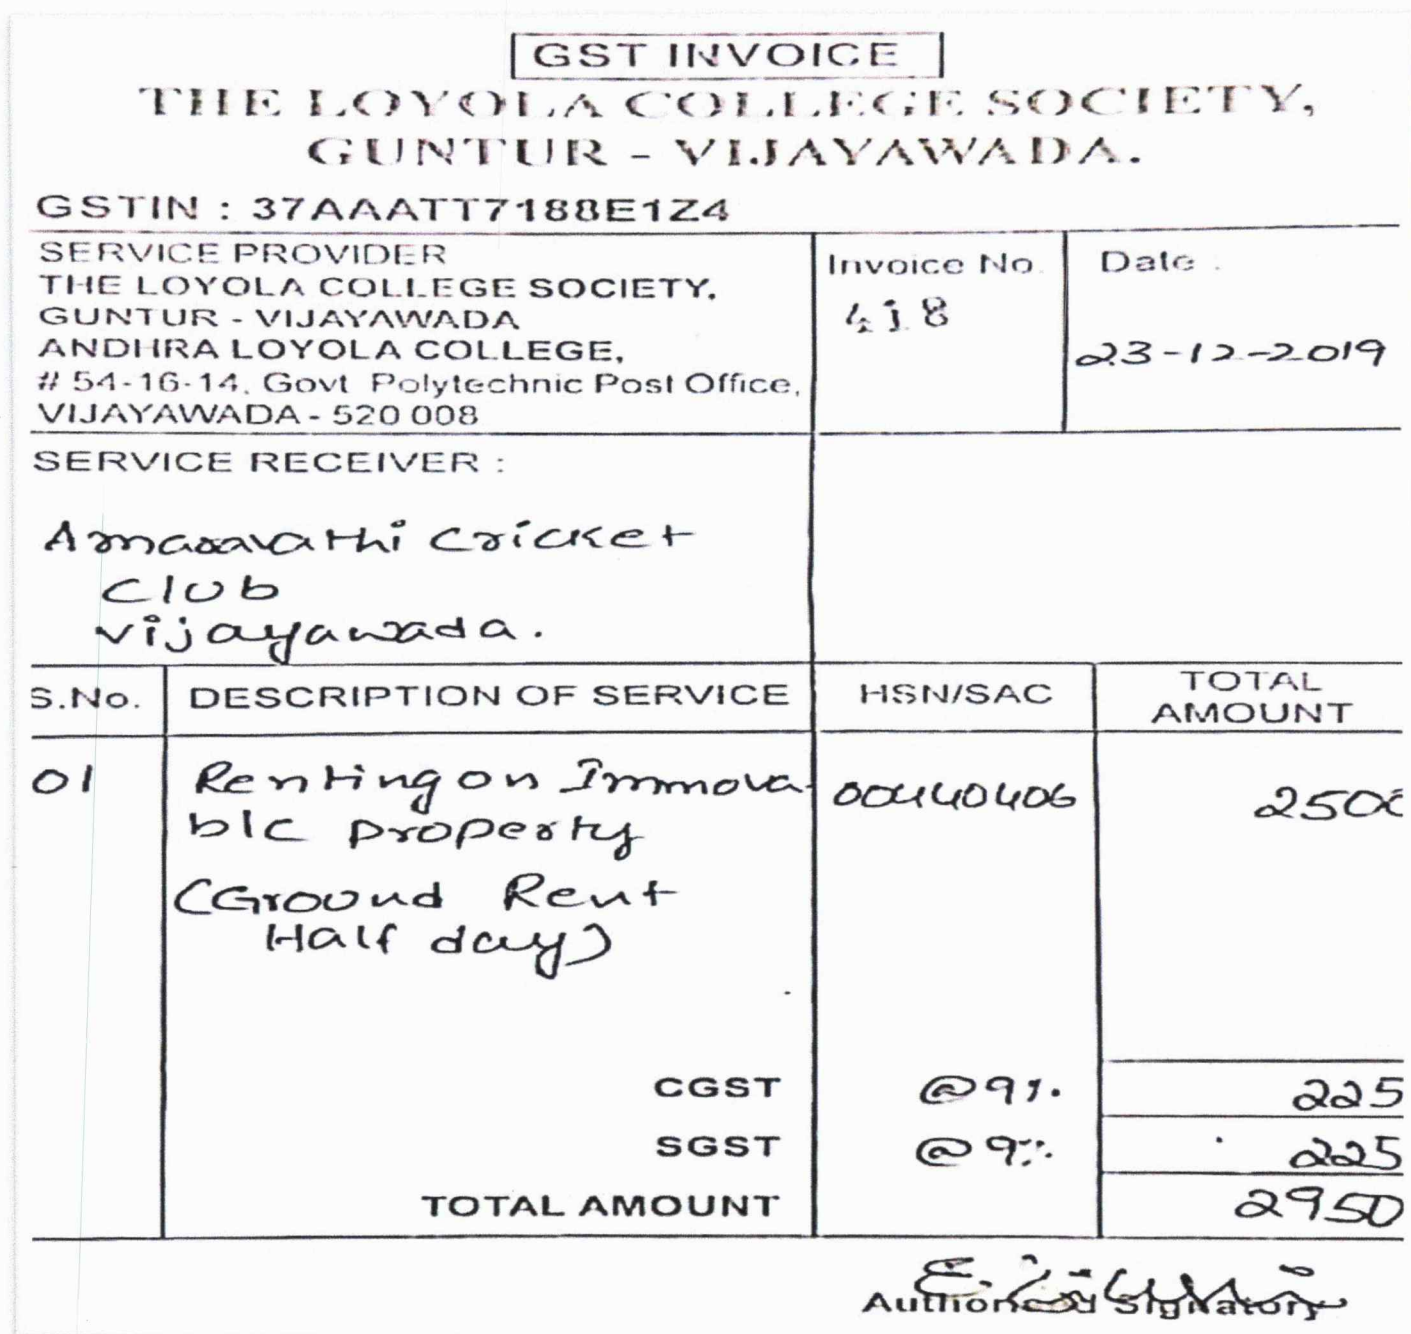 GST INVOICE
THE LOYOLA COLLEGE SOCIETY,
GUNTUR - VIJAYAWADA.
GSTIN : 37AAATT7188E1Z4
SERVICE PROVIDER
THE LOYOLA COLLEGE SOCIETY,
GUNTUR - VIJAYAWADA
ANDHRA LOYOLA COLLEGE,
# 54-16-14, Govt Polytechnic Post Office,
VIJAYAWADA - 520 008
Invoice No.
418
Date :
23-12-2019
SERVICE RECEIVER :
Amaravathi Cricket
Club
Vijayawada.
S.No. DESCRIPTION OF SERVICE HSN/SAC TOTAL
AMOUNT
01 Renting on Immova- 00440406 2500
ble property
(Ground Rent
Half day)
CGST @9%. 225
SGST @9%. 225
TOTAL AMOUNT 2950
Authorised Signatory